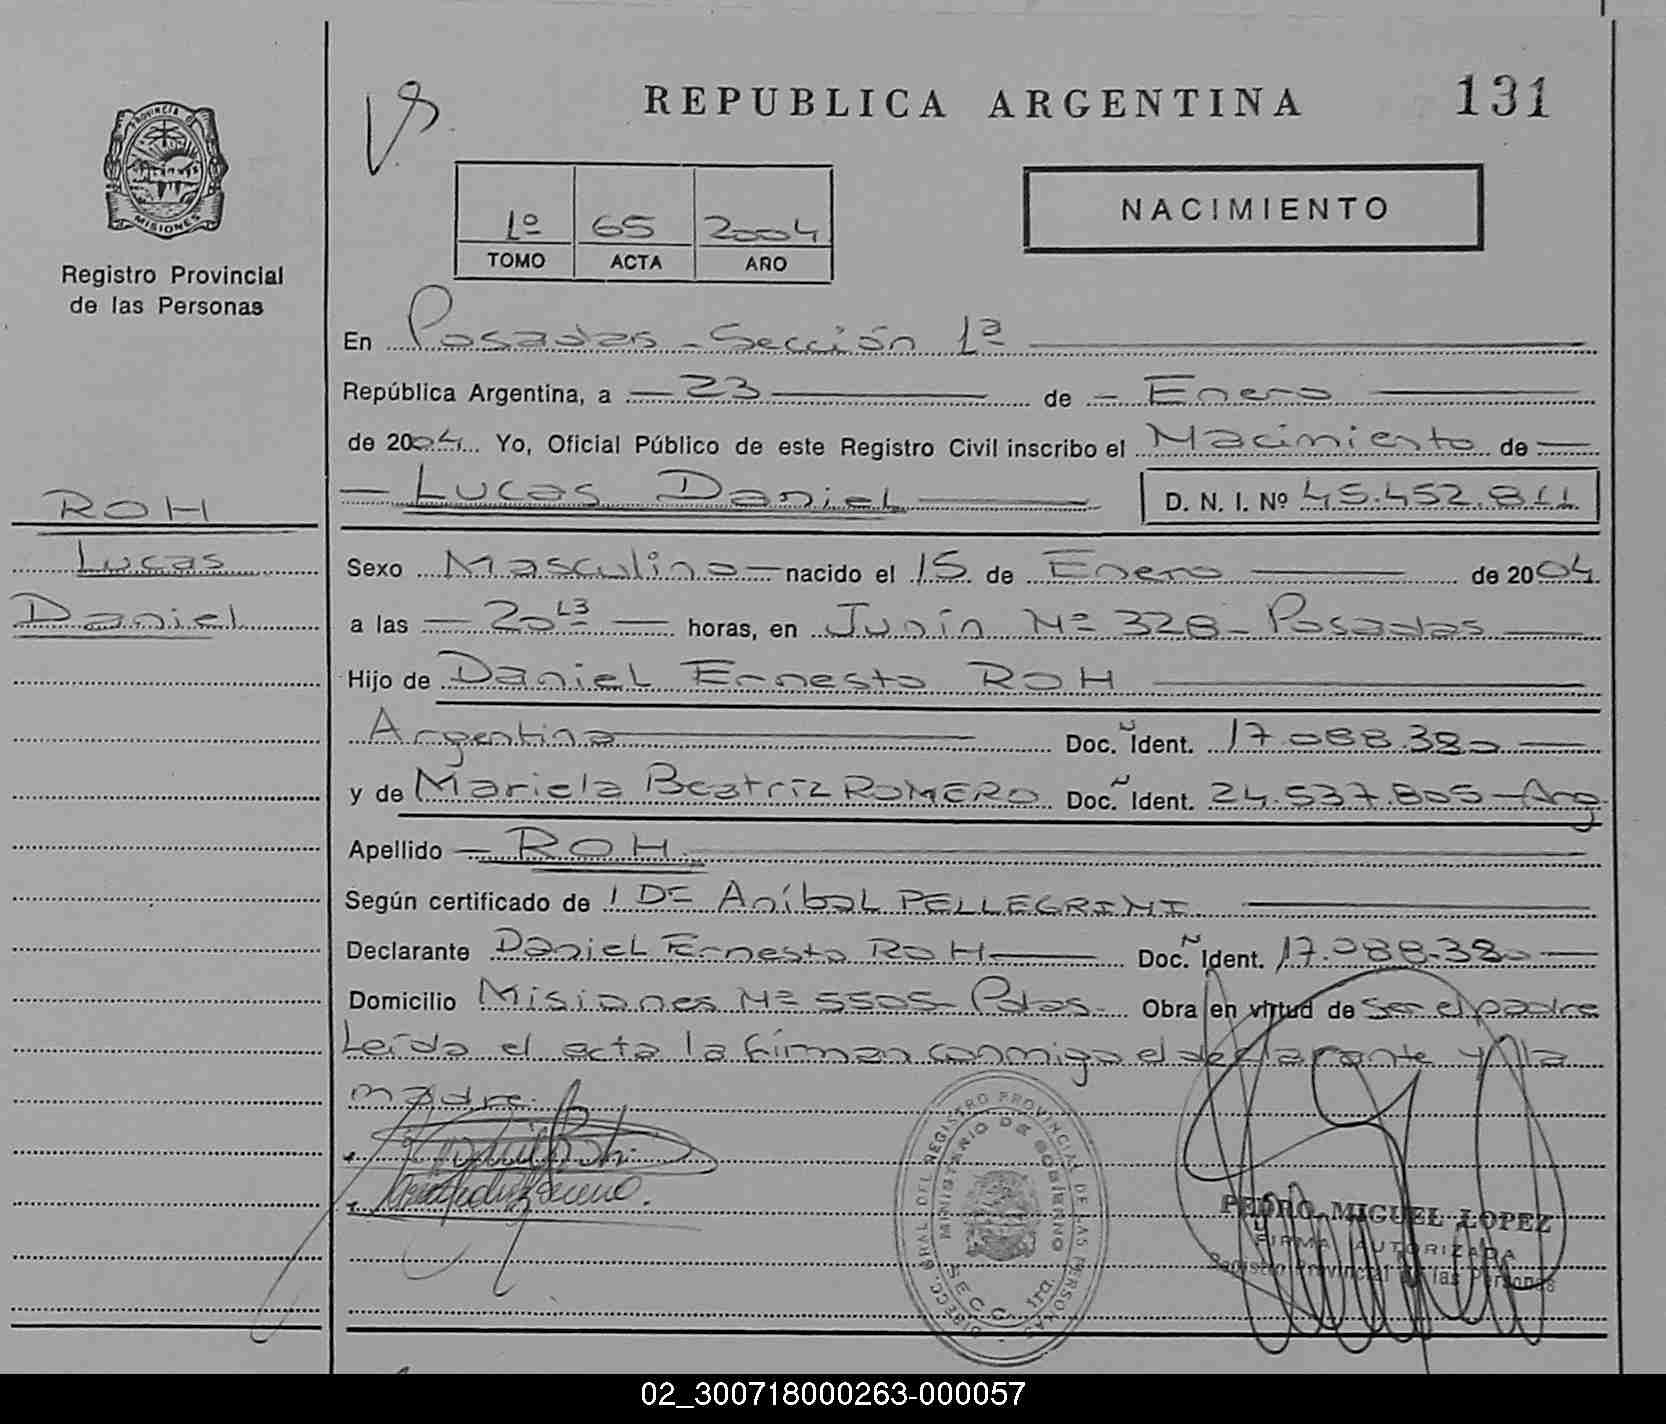 REPUBLICA ARGENTINA
131
PROVINCIA DE
MISIONES
Registro Provincial
de las Personas
NACIMIENTO
1º 65 2004
TOMO ACTA AÑO
En Posadas - Sección 1ª
República Argentina, a - 23 de - Enero
de 2004. Yo, Oficial Público de este Registro Civil inscribo el Nacimiento de
- Lucas Daniel D. N. I. Nº 45.452.811
ROH
Lucas
Daniel
Sexo Masculino - nacido el 15 de Enero de 2004
a las - 20 13 - horas, en Junín Nº 328 - Posadas
Hijo de Daniel Ernesto ROH
Argentino Doc. Ñ Ident. 17.088.380
y de Mariela Beatriz ROMERO Doc. Ñ Ident. 24.537.805 - Arg
Apellido - ROH
Según certificado de / Dr Aníbal PELLEGRINI
Declarante Daniel Ernesto ROH Doc. Ñ Ident. 17.088.380
Domicilio Misiones Nº 5505 - Pdas. Obra en virtud de ser el padre
Leída el acta la firman conmigo el declarante y la
madre.
DIRECC. GRAL. DEL REGISTRO PROVINCIAL DE LAS PERSONAS
MINISTERIO DE GOBIERNO
SECC. 1ra.
PEDRO MIGUEL LOPEZ
FIRMA AUTORIZADA
Registro Provincial de las Personas
02_300718000263-000057